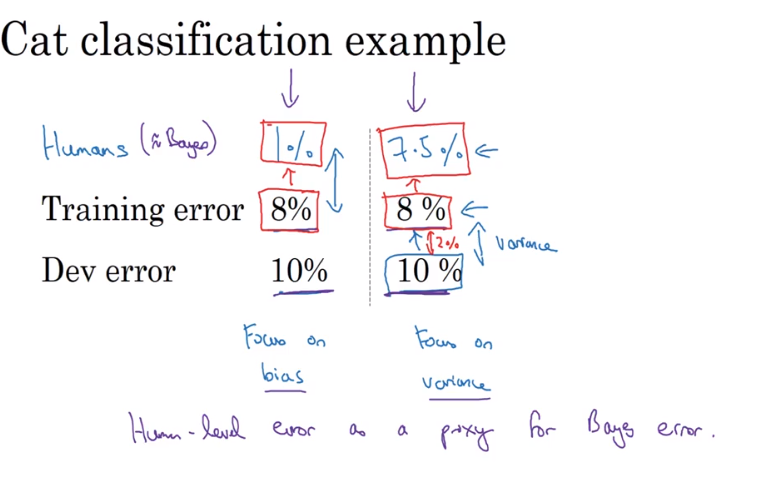 Cat classification example
Humans (≈ Bayes) 1% 7.5%
Training error 8% 8 %
2% variance
Dev error 10% 10 %
Focus on bias
Focus on variance
Human-level error as a proxy for Bayes error.